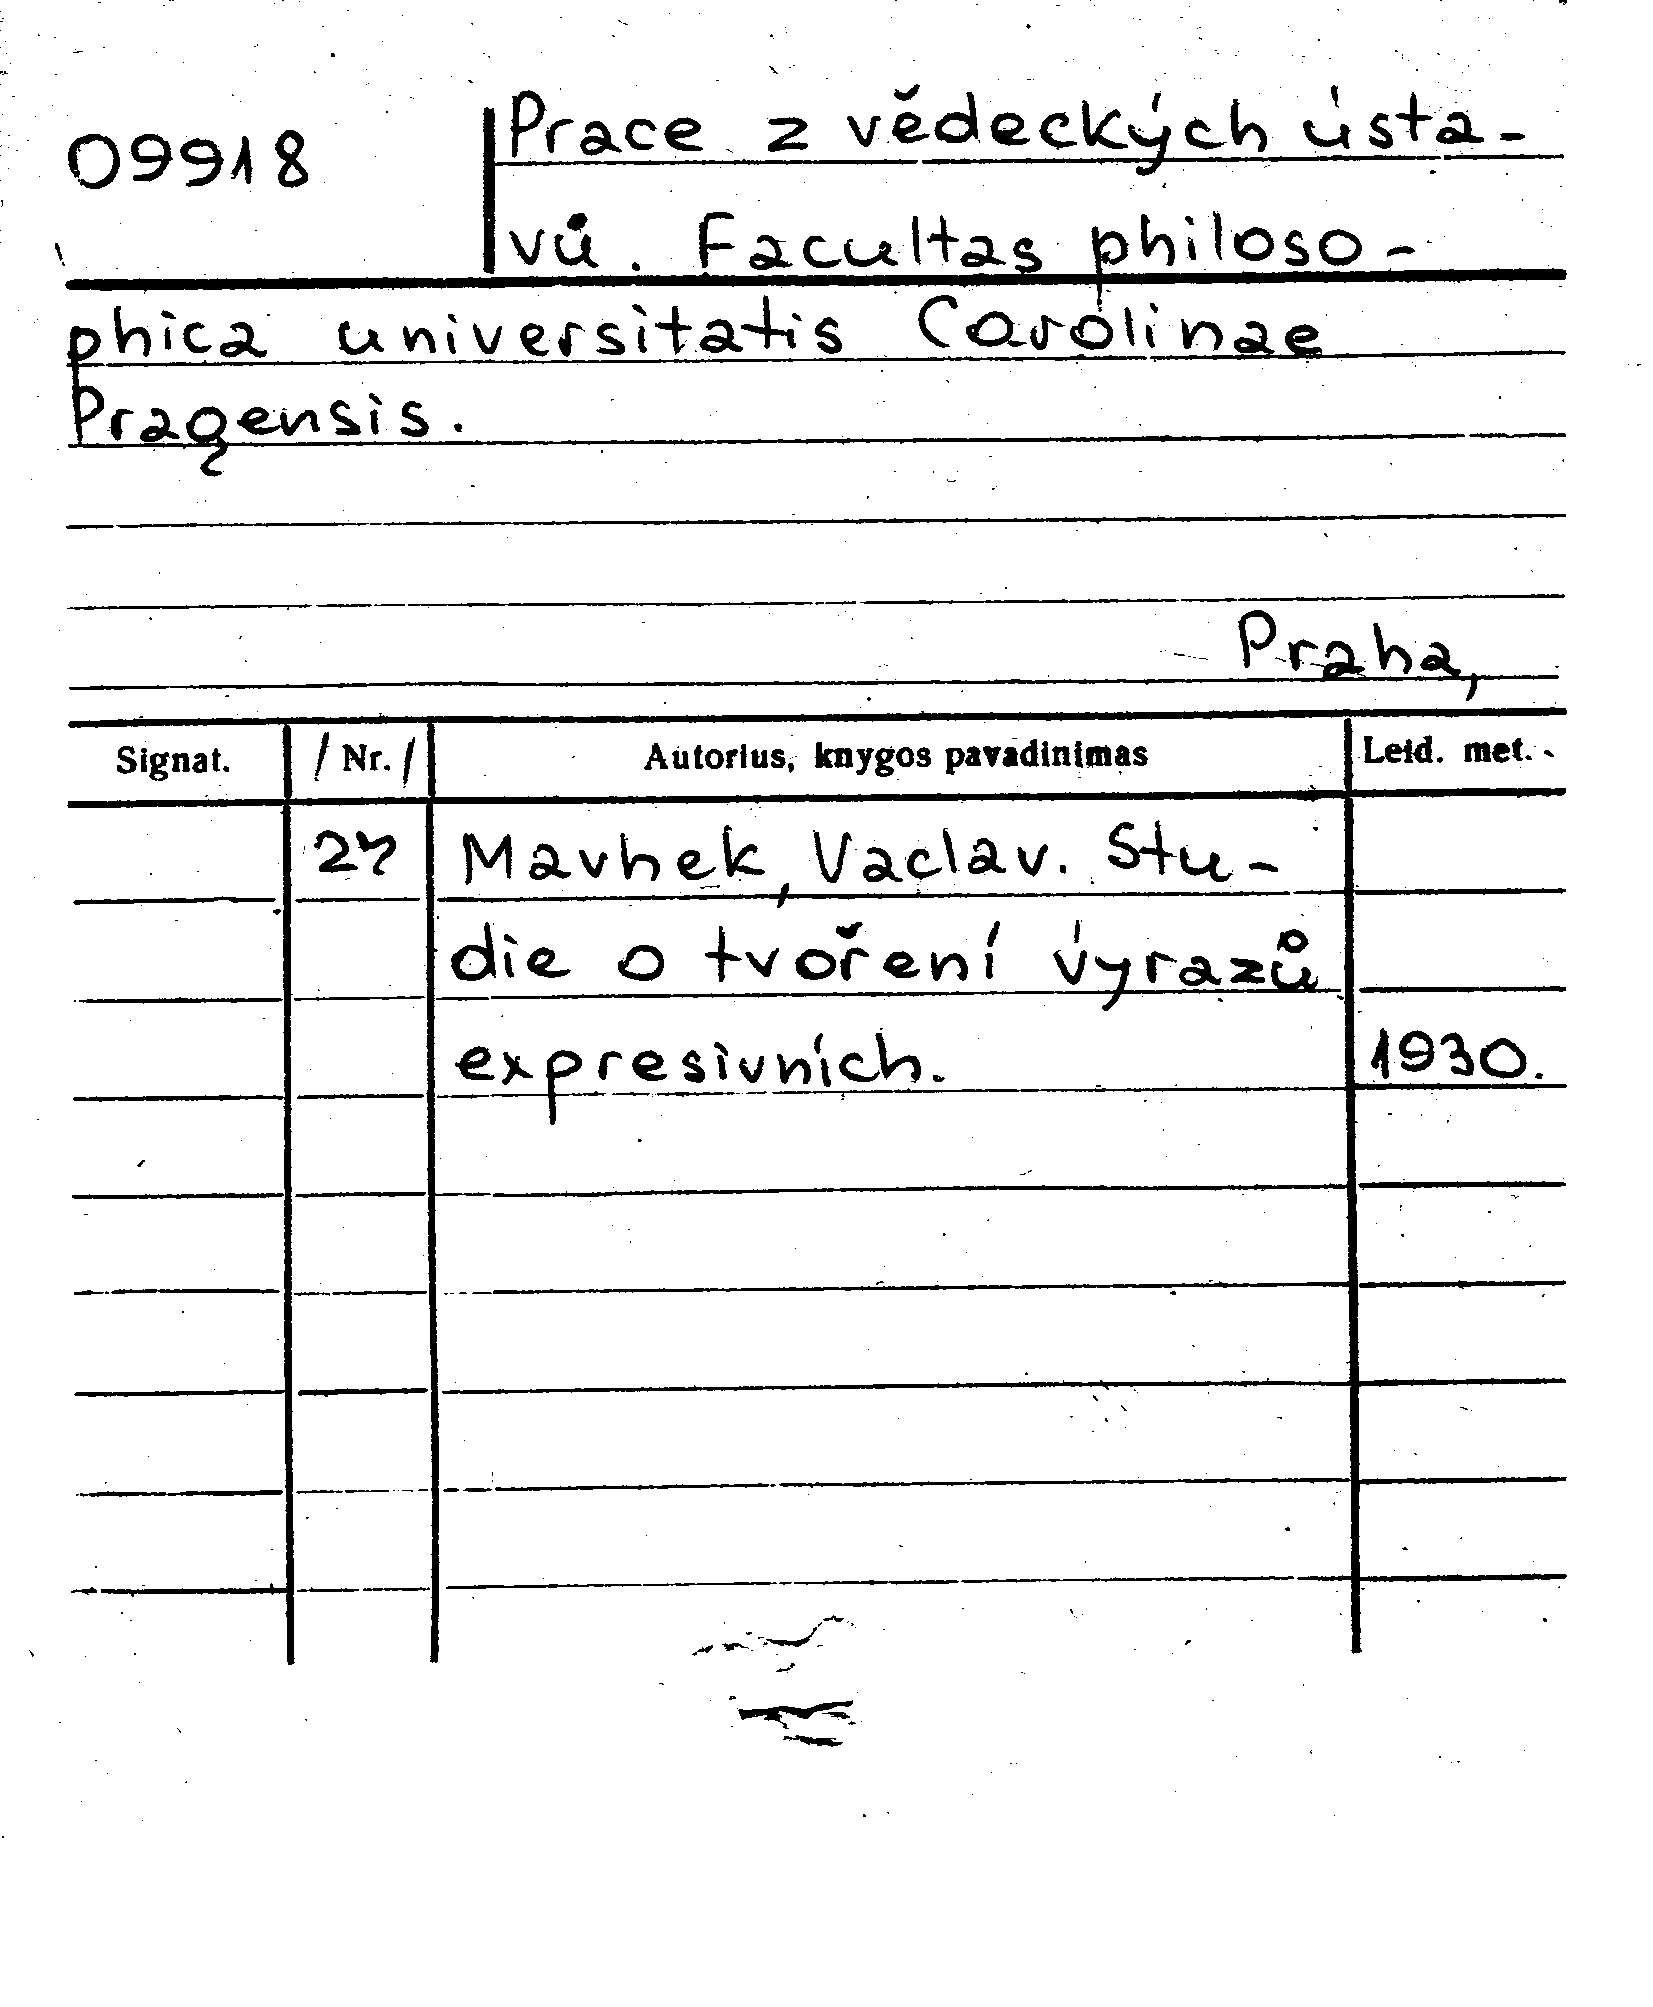 09918
Prace z vědeckých ústa-
vů. Facultas philoso-
phica universitatis Carolinae
Pragensis.
Praha,
Signat. /Nr./ Autorius, knygos pavadinimas Leid. met.
27 Mavhek, Vaclav. Stu-
die o tvoření výrazů
expresivních. 1930.